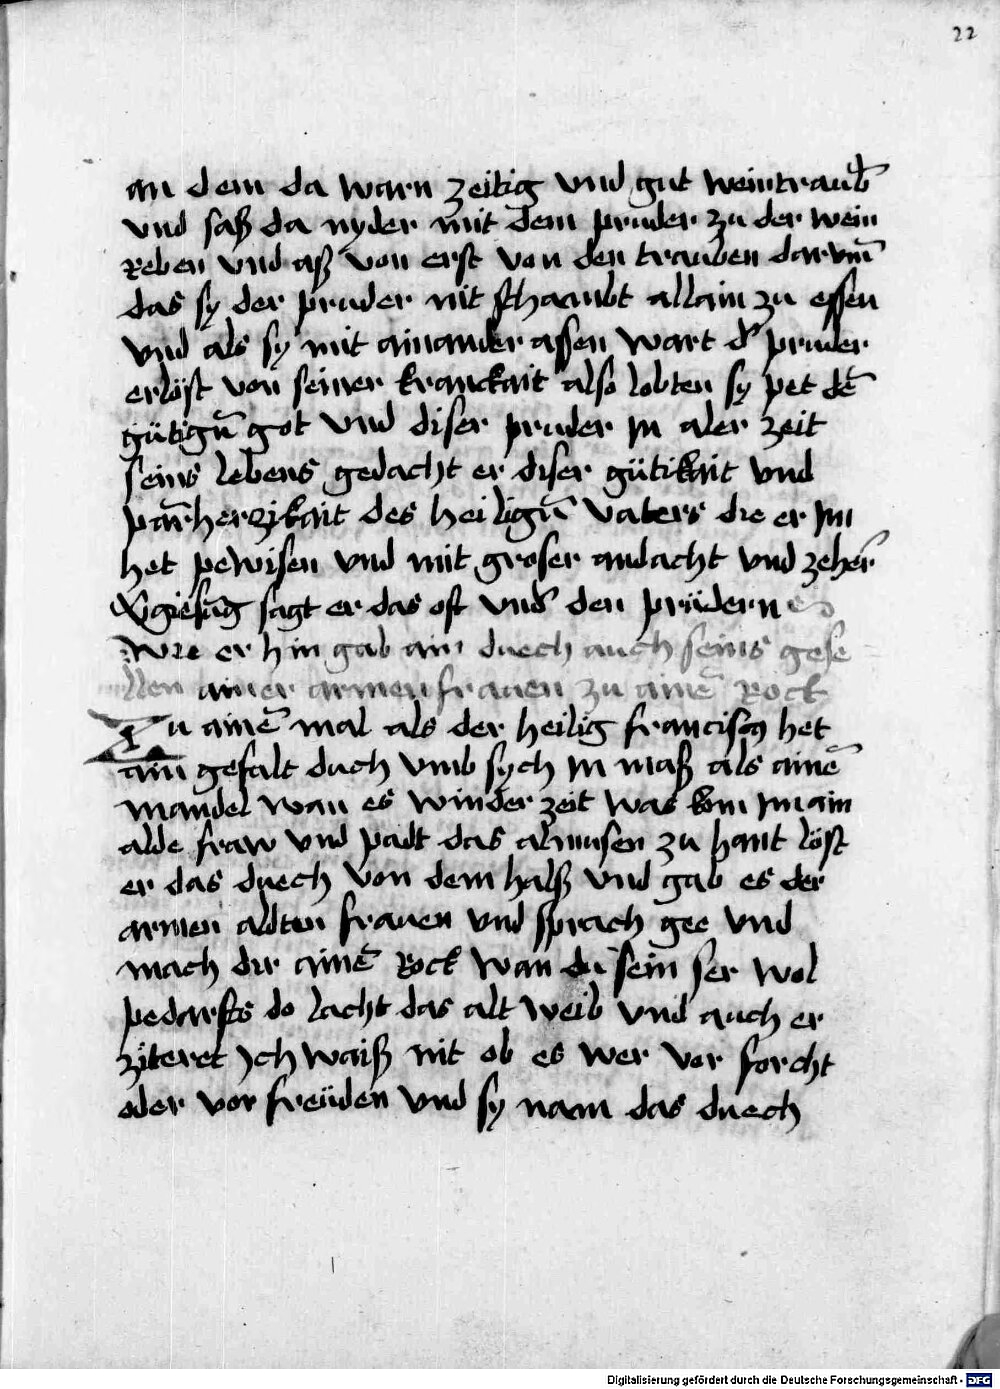 22
an dem da warn zeitig vnd gut weintraub̄
vnd saß da nyder mit dem pruder zu der wein
reben vnd aß von erst von den trauben darvm̄
das sy der pruder nit schaubt allain zu essen
vnd als sy mit ainander assen wart d' pruder
erlöst von seiner kranckait also lobten sy pet dē
gütigū got vnd diser pruder in aler zeit
seins lebens gedacht er diser gütikait vnd
par̄herzikait des heiligū vaters die er im
het pewisen vnd mit groser andacht vnd zeher̄
sagt er das oft vnd' den prüdern
wie er hin gab ain duech auch seins gese
llen ainer armen frauen zu ainē Rock
Zu ainē mal als der heilig franciscꝰ het
ain gefalt duch vmb sych in maß als ainē
mandel wan es winder zeit was kom im ain
alde fraw vnd padt das almusen zu hant löst
er das duech von dem halß vnd gab es der
armen aldten frauen vnd sprach gee vnd
mach dir ainē Rock wan du sein ser wol
pedarfts do lacht das alt weib vnd auch er
ziteret Ich waiß nit ob es wer vor forcht
oder vor freüden vnd sy nam das duech
Digitalisierung gefördert durch die Deutsche Forschungsgemeinschaft - DFG